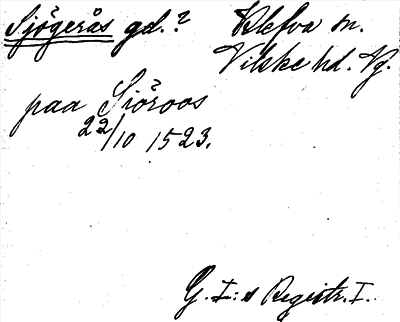 Sjögerås gd.? Klefva sn.
Vilske hd. Vg.
paa Siöroos
22/10 1523.
G. I:s Registr. I.